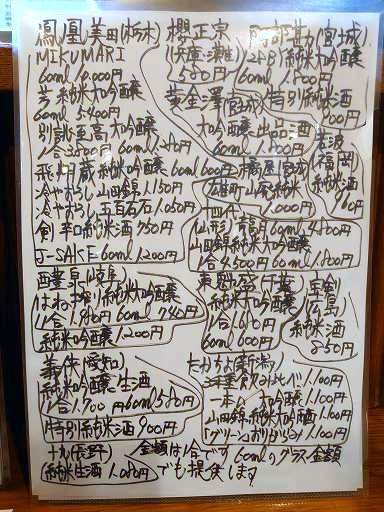 鳳凰美田(栃木)
MIKUMARI
60ml 2,000円
芳 純米大吟醸
60ml 5400円
別誂至高大吟醸
1合3800円 60ml
飛 純米吟醸 60ml 600円
冷やおろし 山田錦 1,150円
冷やおろし 五百万石 1,050円
剣 辛口純米酒 950円
J-SAKE 60ml 1,200円
櫻正宗
(兵庫・灘)
580円
黄金澤(宮城)
大吟醸出品酒
60ml 1,800円
阿部勘(宮城)
純米大吟醸
60ml 1,800円
特別純米酒
900円
橘屋(宮城)
雄町 山廃純米
1,000円
(福岡)
純米酒
960円
十四代
(山形) 龍月 60ml 4,800円
山田錦 純米大吟醸
1合 4,500円 60ml 1,800円
醴泉(岐阜)
純米大吟醸
1合 1,980円 60ml 740円
純米吟醸 1,200円
東魁盛(千葉)
純米大吟醸
1合 1,610円
60ml 600円
宝剣
(広島)
純米酒
850円
義侠(愛知)
純米吟醸 生酒
1合 1,700円 60ml 580円
特別純米酒 900円
たかちよ(新潟)
飲みくらべ 1,100円
一本〆 大吟醸 1,100円
山田錦 純米大吟醸 1,100円
グリーン おりがらみ 1,100円
十九(長野)
純米生酒 1,080円
金額は1合です 60mlのグラス金額
でも提供します